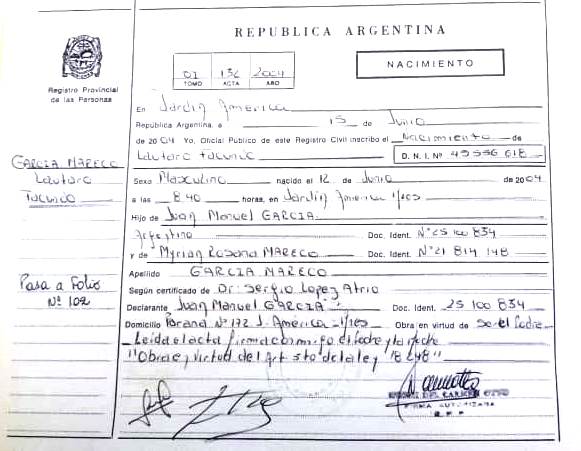 REPUBLICA ARGENTINA
Registro Provincial
de las Personas
01 132 2004
TOMO ACTA AÑO
NACIMIENTO
En Jardín America
República Argentina, a 15 de Junio
de 2004 Yo, Oficial Público de este Registro Civil inscribo el Nacimiento de
Lautaro Facundo D. N. I. Nº 45556 618
GARCIA MARECO
Lautaro
Facundo
Sexo Masculino nacido el 12 de Junio de 2004
a las 8 40 horas, en Jardín America
Hijo de Juan Manuel GARCIA
Argentino Doc. Ident. Nº 25 100 834
y de Myrian Rosana MARECO Doc. Ident. Nº 21 814 148
Apellido GARCIA MARECO
Según certificado de Dr: Sergio Lopez Atrio
Pasa a Folio
Nº 102
Declarante Juan Manuel GARCIA Doc. Ident. 25 100 834
Domicilio Parana Nº 172 J. America Obra en virtud de Ser el Padre
Leida el acta firma conmigo el Padre
"Obra en virtud del Art 5to de la ley 18 248"
DEL CARMEN OTTO
FIRMA AUTORIZADA
R. P. P.